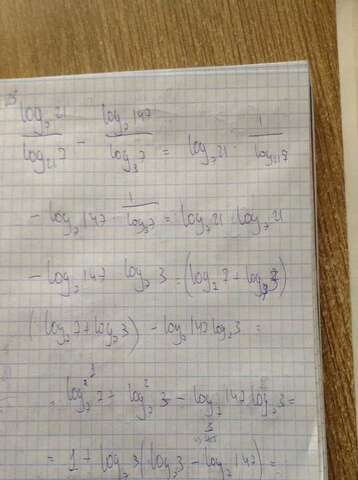 log₇21/log₂₁7 - log₇147/log₃7 = log₇21 · 1/log₂₁7
- log₇147 · 1/log₃7 = log₇21 · log₇21
- log₇147 log₇3 = (log₇7 + log₇3)
(log₇7 + log₇3) - log₇147 log₇3 =
= log₇²7 + log₇²3 - log₇147 log₇3 =
= 1 + log₇3 (log₇3 - log₇147) =